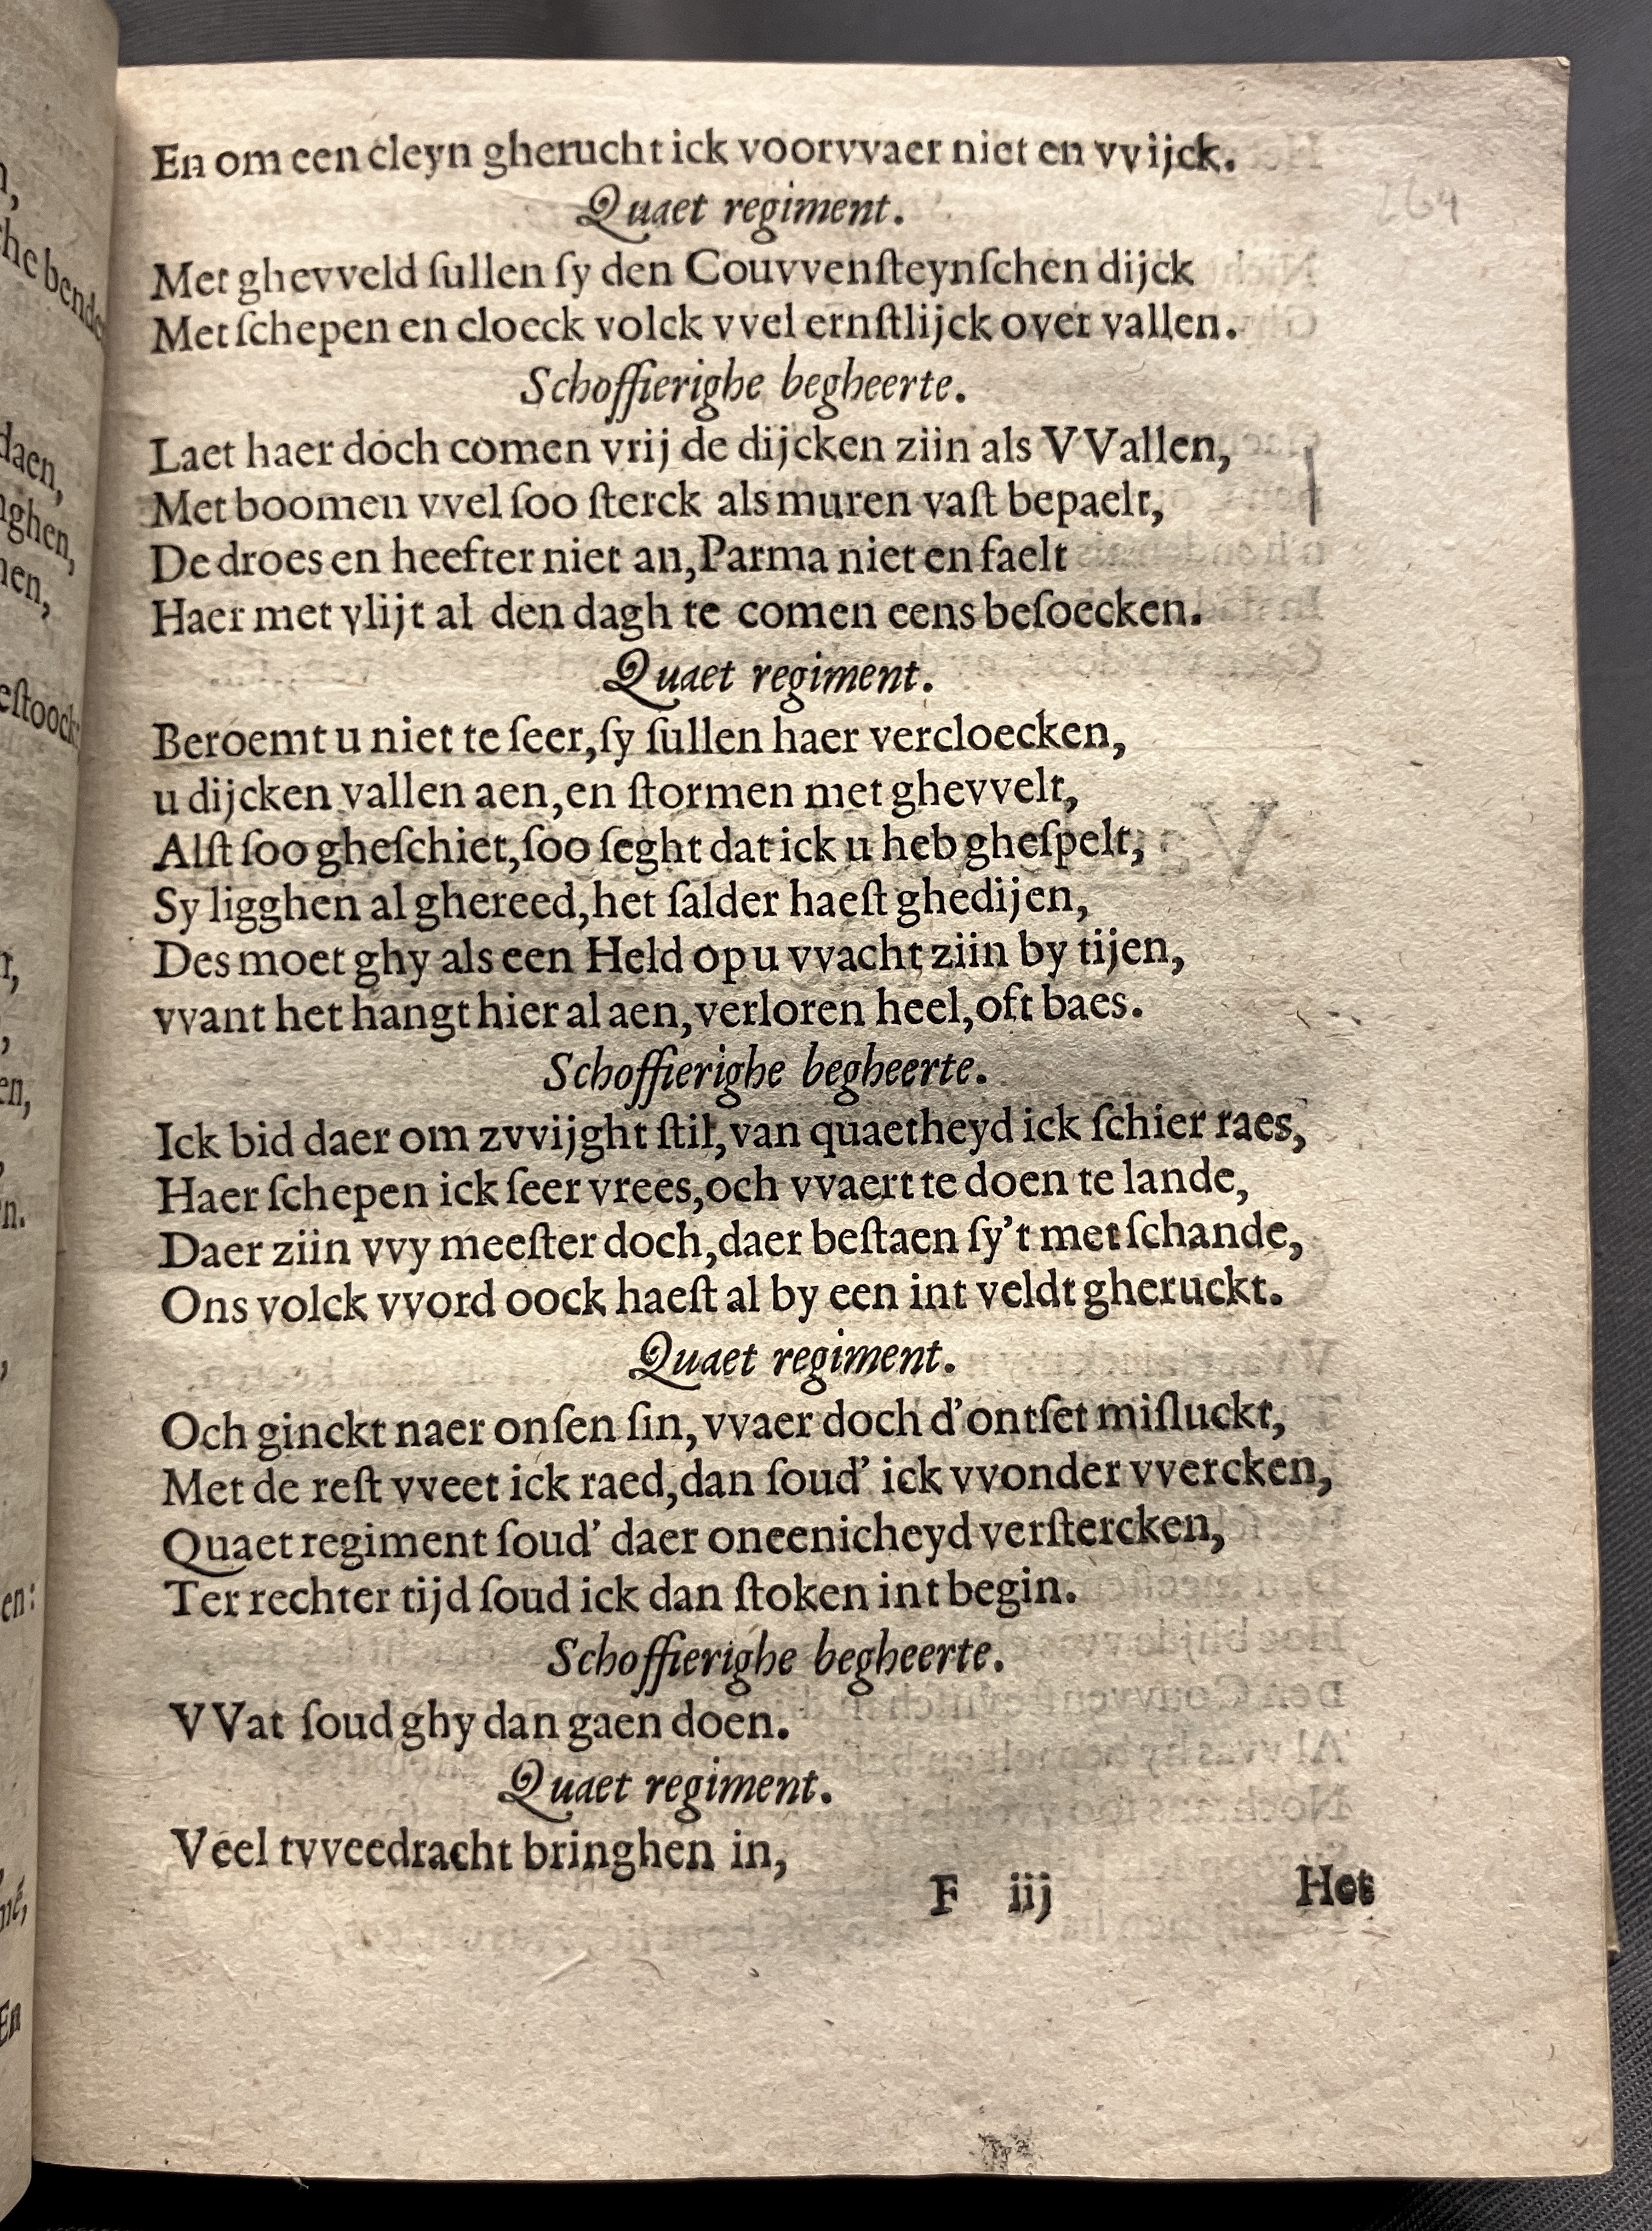 En om een cleyn gherucht ick voorvvaer niet en vvijck.
Quaet regiment.
Met ghevveld ſullen ſy den Couvvenſteynſchen dijck
Met ſchepen en cloeck volck vvel ernſtlijck over vallen.
Schoffierighe begheerte.
Laet haer doch comen vrij de dijcken ziin als VVallen,
Met boomen vvel ſoo ſterck als muren vaſt bepaelt,
De droes en heefter niet an, Parma niet en faelt
Haer met vlijt al den dagh te comen eens beſoecken.
Quaet regiment.
Beroemt u niet te ſeer, ſy ſullen haer vercloecken,
u dijcken vallen aen, en ſtormen met ghevvelt,
Alſt ſoo gheſchiet, ſoo ſeght dat ick u heb gheſpelt,
Sy ligghen al ghereed, het ſalder haeſt ghedijen,
Des moet ghy als een Held op u vvacht ziin by tijen,
vvant het hangt hier al aen, verloren heel, oft baes.
Schoffierighe begheerte.
Ick bid daer om zvvijght ſtil, van quaetheyd ick ſchier raes,
Haer ſchepen ick ſeer vrees, och vvaert te doen te lande,
Daer ziin vvy meeſter doch, daer beſtaen ſy't met ſchande,
Ons volck vvord oock haeſt al by een int veldt gheruckt.
Quaet regiment.
Och ginckt naer onſen ſin, vvaer doch d'ontſet miſluckt,
Met de reſt vveet ick raed, dan ſoud' ick vvonder vvercken,
Quaet regiment ſoud' daer oneenicheyd verſtercken,
Ter rechter tijd ſoud ick dan ſtoken int begin.
Schoffierighe begheerte.
VVat ſoud ghy dan gaen doen.
Quaet regiment.
Veel tvveedracht bringhen in,
F iij Het